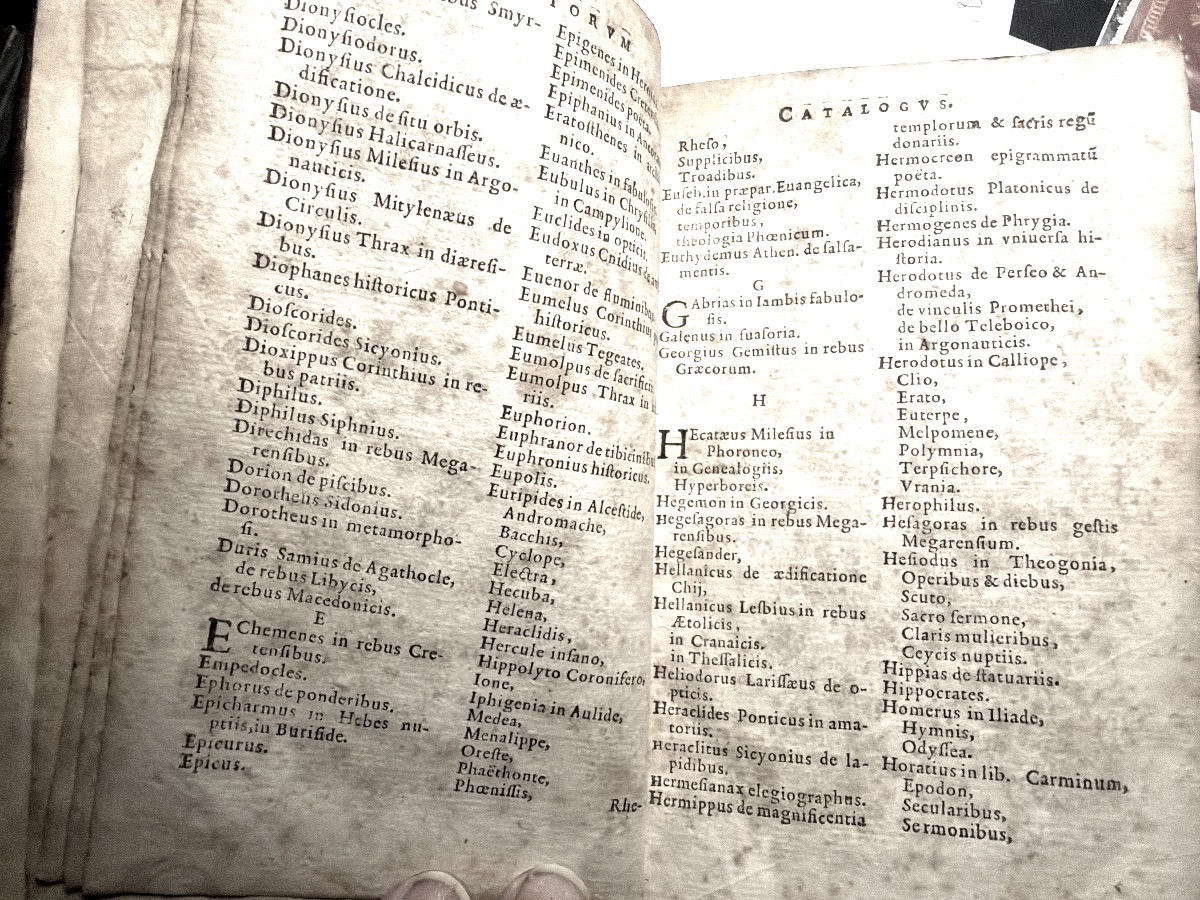 TORVM
Smyr-
Dionyſiocles.
Dionyſiodorus.
Dionyſius Chalcidicus de æ-
dificatione.
Dionyſius de ſitu orbis.
Dionyſius Halicarnaſſeus.
Dionyſius Mileſius in Argo-
nauticis.
Dionyſius Mitylenæus de
Circulis.
Dionyſius Thrax in diæreſi-
bus.
Diophanes hiſtoricus Ponti-
cus.
Dioſcorides.
Dioſcorides Sicyonius.
Dioxippus Corinthius in re-
bus patriis.
Diphilus.
Diphilus Siphnius.
Direchidas in rebus Mega-
renſibus.
Dorion de piſcibus.
Dorotheus Sidonius.
Dorotheus in metamorpho-
ſi.
Duris Samius de Agathocle,
de rebus Libycis,
de rebus Macedonicis.
E
EChemenes in rebus Cre-
tenſibus.
Empedocles.
Ephorus de ponderibus.
Epicharmus in Hebes nu-
ptiis,in Buriſide.
Epicurus.
Epicus.
Epigenes in
Epimenides
Epimenides poëta.
Epiphanius in
Eratoſthenes in
nico.
Euanthes in
Eubulus in
in Campylione.
Euclides in opticis.
Eudoxus Cnidius
terræ.
Euenor de fluminibus
Eumelus Corinthius
hiſtoricus.
Eumelus Tegeates.
Eumolpus de
Eumolpus Thrax in
riis.
Euphorion.
Euphranor de
Euphronius hiſtoricus.
Eupolis.
Euripides in Alceſtide,
Andromache,
Bacchis,
Cyclope,
Electra,
Hecuba,
Helena,
Heraclidis,
Hercule inſano,
Hippolyto Coronifero,
Ione,
Iphigenia in Aulide,
Medea,
Menalippe,
Oreſte,
Phaëthonte,
Phœniſſis,
Rhe-
CATALOGVS.
Rheſo,
Supplicibus,
Troadibus.
Euſeb.in præpar.Euangelica,
de falſa religione,
temporibus,
theologia Phœnicum.
Euthydemus Athen. de ſalſa-
mentis.
G
GAbrias in Iambis fabulo-
ſis.
Galenus in ſuaſoria.
Georgius Gemiſtus in rebus
Græcorum.
H
HEcatæus Mileſius in
Phoroneo,
in Genealogiis,
Hyperboreis.
Hegemon in Georgicis.
Hegeſagoras in rebus Mega-
renſibus.
Hegeſander,
Hellanicus de ædificatione
Chij,
Hellanicus Leſbius in rebus
Ætolicis,
in Cranaicis.
in Theſſalicis.
Heliodorus Lariſſæus de o-
pticis.
Heraclides Ponticus in ama-
toriis.
Heraclitus Sicyonius de la-
pidibus.
Hermeſianax elegiographus.
Hermippus de magnificentia
templorum & ſacris regū
donariis.
Hermocreon epigrammatū
poëta.
Hermodotus Platonicus de
diſciplinis.
Hermogenes de Phrygia.
Herodianus in vniuerſa hi-
ſtoria.
Herodotus de Perſeo & An-
dromeda,
de vinculis Promethei,
de bello Teleboico,
in Argonauticis.
Herodotus in Calliope,
Clio,
Erato,
Euterpe,
Melpomene,
Polymnia,
Terpſichore,
Vrania.
Herophilus.
Heſagoras in rebus geſtis
Megarenſium.
Heſiodus in Theogonia,
Operibus & diebus,
Scuto,
Sacro ſermone,
Claris mulieribus,
Ceycis nuptiis.
Hippias de ſtatuariis.
Hippocrates.
Homerus in Iliade,
Hymnis,
Odyſſea.
Horatius in lib. Carminum,
Epodon,
Secularibus,
Sermonibus,